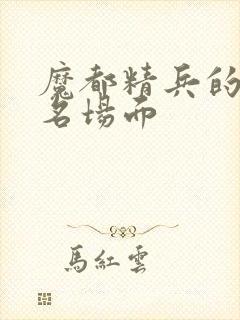 魔都精兵的
名場面
馬紅雲